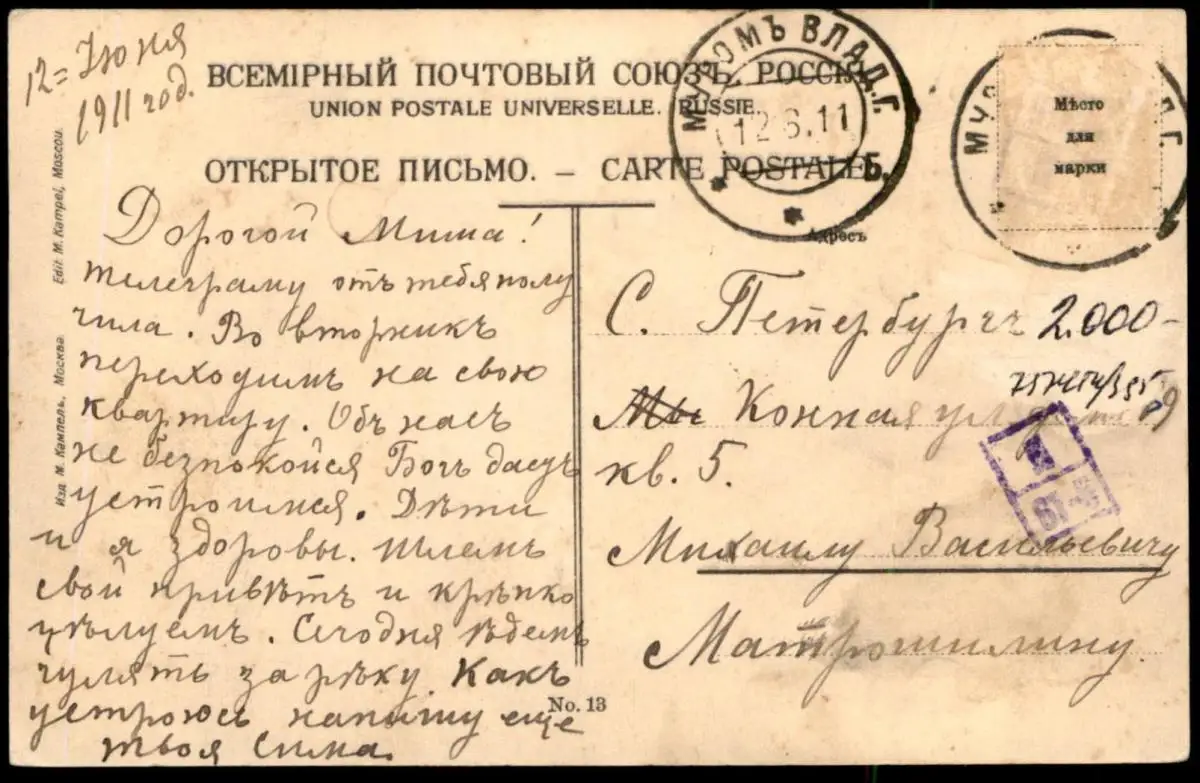 12 = Июня
1911 год.
ВСЕМІРНЫЙ ПОЧТОВЫЙ СОЮЗЪ. РОССІЯ.
UNION POSTALE UNIVERSELLE. RUSSIE.
ОТКРЫТОЕ ПИСЬМО. – CARTE POSTALE.
МУРОМЪ ВЛАД.Г.
12.6.11
Б.
Мѣсто
для
марки
Изд. М. Кампель, Москва. Edit M. Kampel, Moscou.
Дорогой Миша!
телеграму отъ тебя полу
чила. Во вторникъ
переходимъ на свою
квартиру. Объ насъ
не безпокойся Богъ дастъ
устроимся. Дѣти
и я здоровы. Шлемъ
свой привѣтъ и крѣпко
цѣлуемъ. Сегодня ѣдемъ
гулять за рѣку. Какъ
устроюсь напишу еще
твоя Сима.
No. 13
Адресъ
С. Петербургъ 2.000-
Мы Конная ул. 19
кв. 5.
1
Михаилу Васильевичу
Матрошилину.